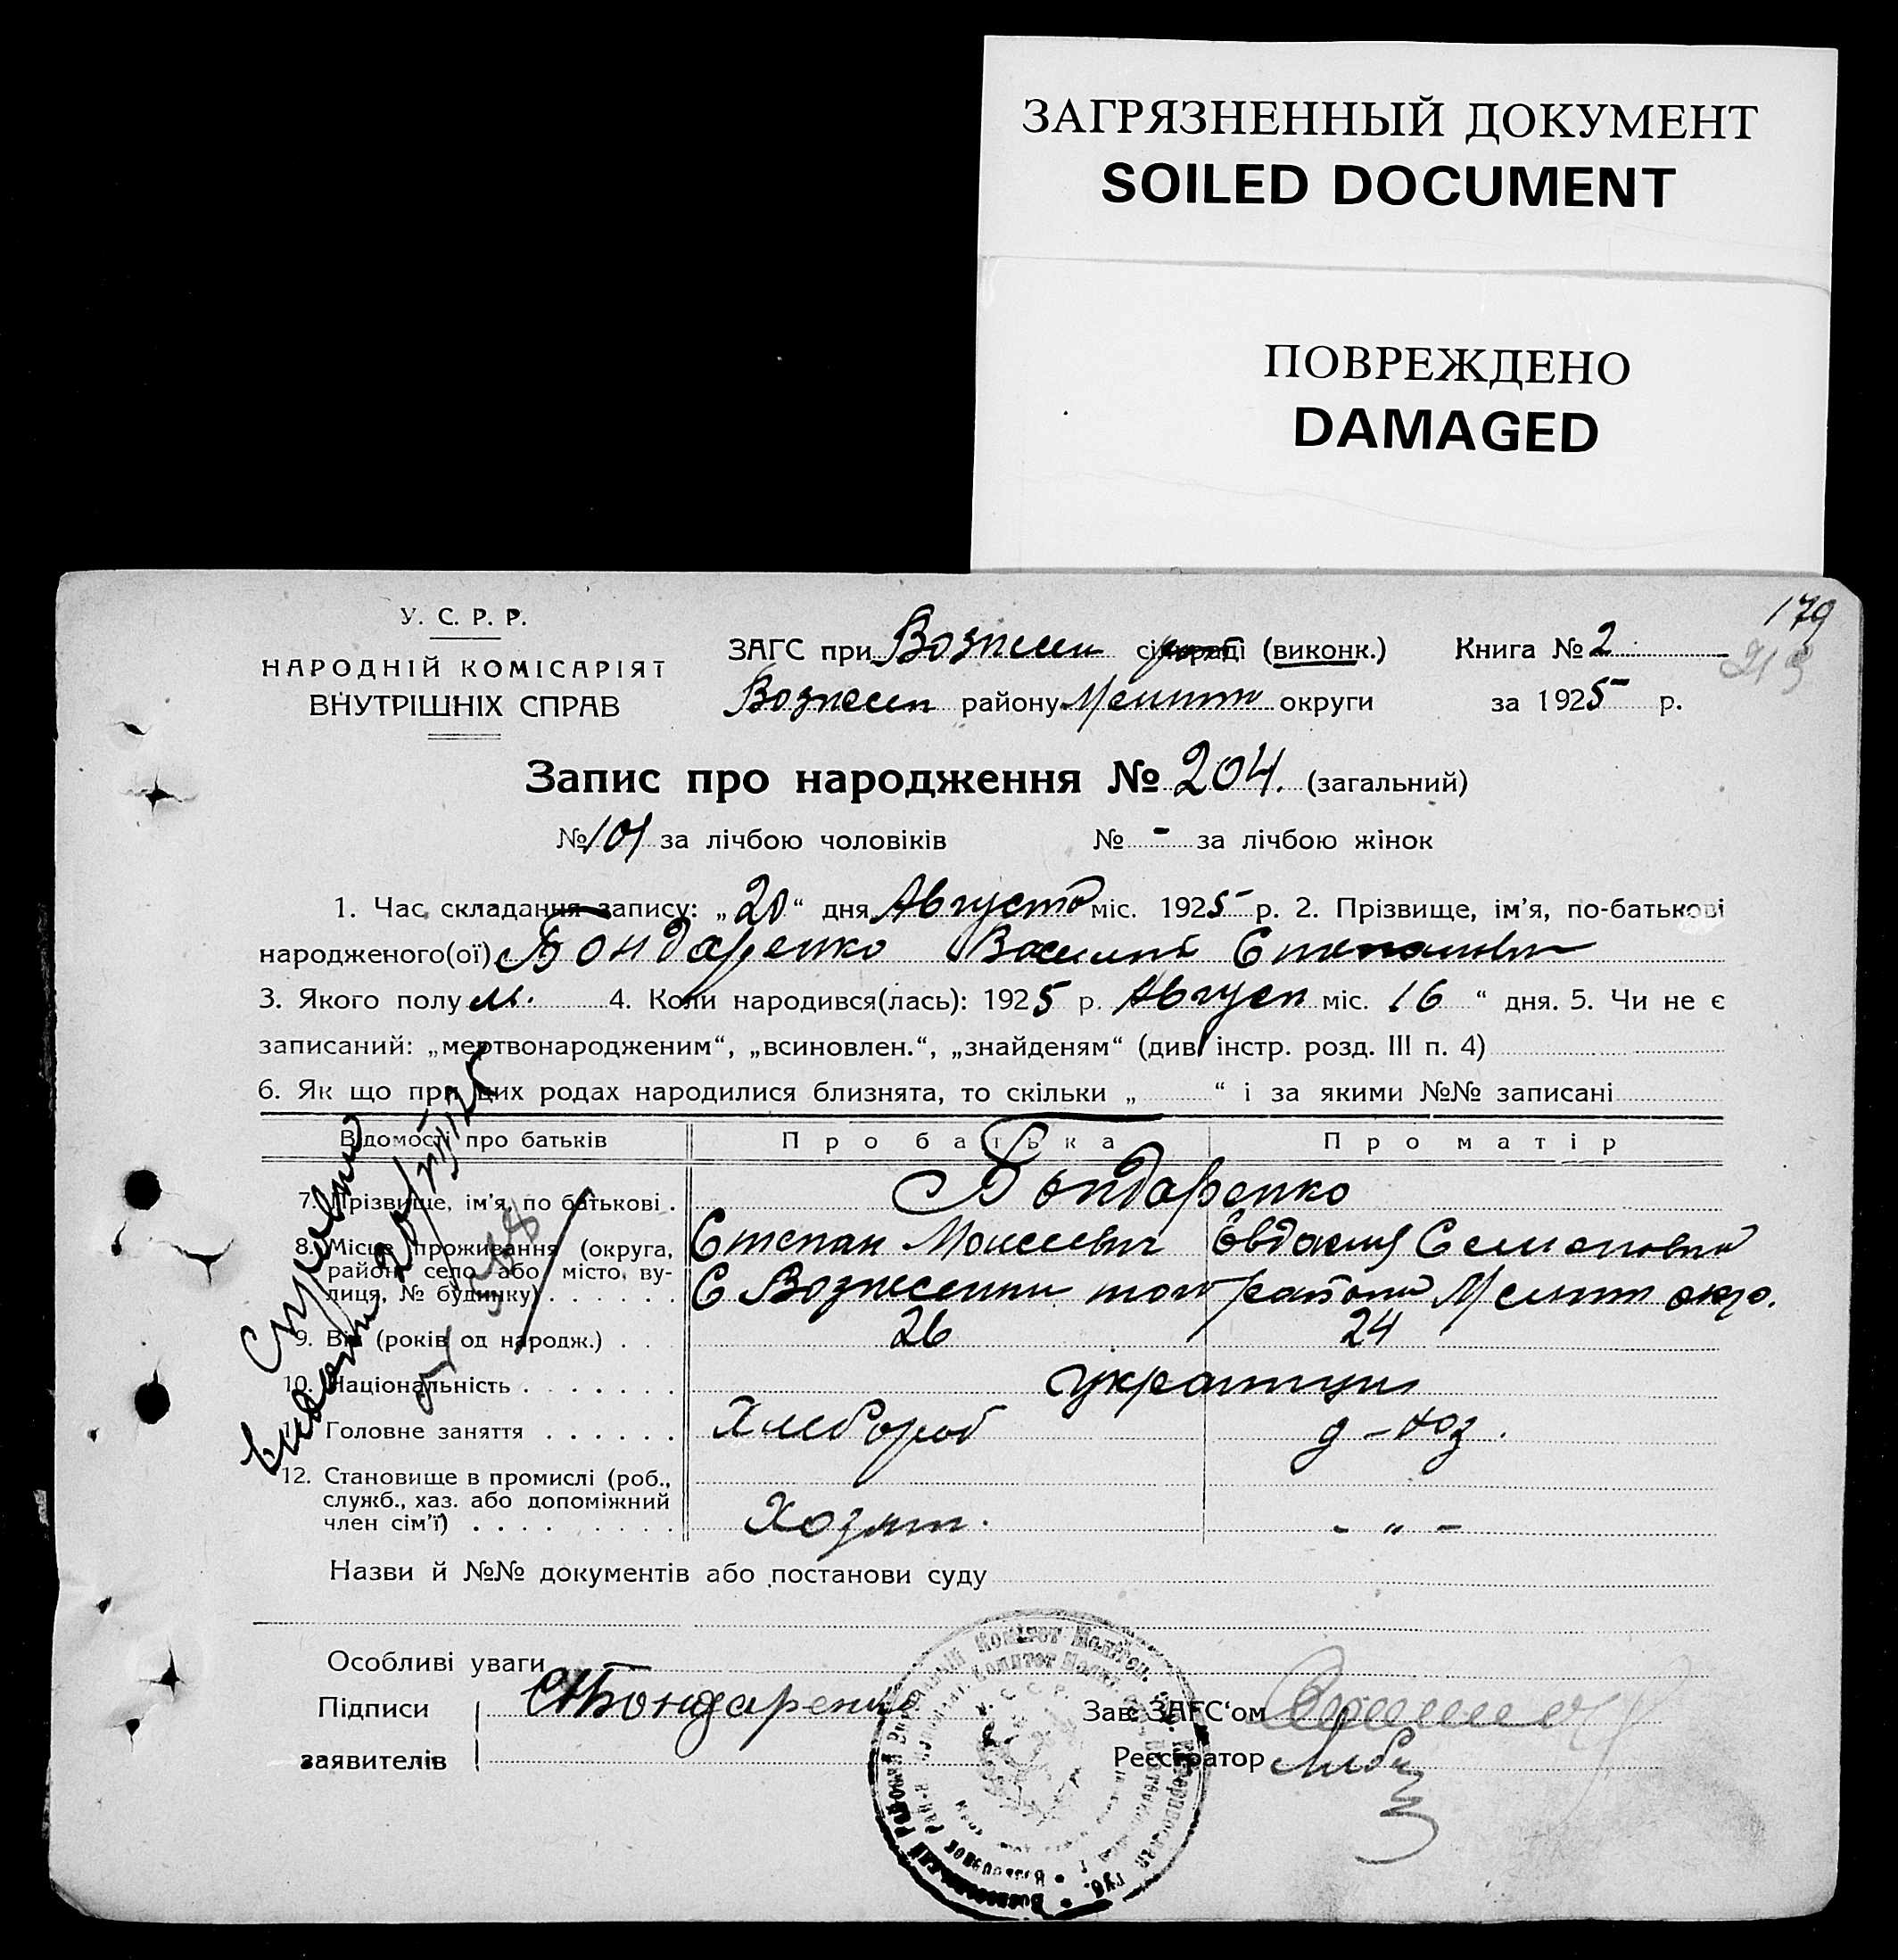 ЗАГРЯЗНЕННЫЙ ДОКУМЕНТ
SOILED DOCUMENT
ПОВРЕЖДЕНО
DAMAGED
179
У. С. Р. Р.
НАРОДНІЙ КОМІСАРІЯТ
ВНУТРІШНІХ СПРАВ
ЗАГС при Вознесен сільраді (виконк.) Книга № 2
Вознесен району Мелит округи за 1925 р.
Запис про народження № 204. (загальний)
№ 101 за лічбою чоловіків № - за лічбою жінок
1. Час складання запису: „20“ дня Августа міс. 1925 р. 2. Прізвище, ім'я, по-батькові
народженого(ої) Бондаренко Василий Степанович
3. Якого полу м. 4. Коли народився(лась): 1925 р. Август міс. 16 “ дня. 5. Чи не є
записаний: „мертвонародженим“, „всиновлен.“, „знайденям“ (див. інстр. розд. III п. 4)
6. Як що при цих родах народилися близнята, то скільки „ “ і за якими №№ записані
Відомості про батьків Про батька Про матір
7. Прізвище, ім'я, по батькові . Бондаренко
Степан Моисеевич Евдокия Семеновна
8. Місце проживання (округа, район, село або місто, вулиця, № будинку) . . . . . . С Вознесенки того района Мелит окр.
9. Вік (років од народж.) . . 26 24
10. Національність . . . . . . . украинцы
11. Головне заняття . . . . . . Хлебороб д-хоз.
12. Становище в промислі (роб., служб., хаз. або допоміжний член сім'ї) . . . . . . . . . Хозяин. - „ -
Назви й №№ документів або постанови суду
Особливі уваги
Підписи СБондаренко Зав. ЗАГС‘ом
заявителів Реєстратор